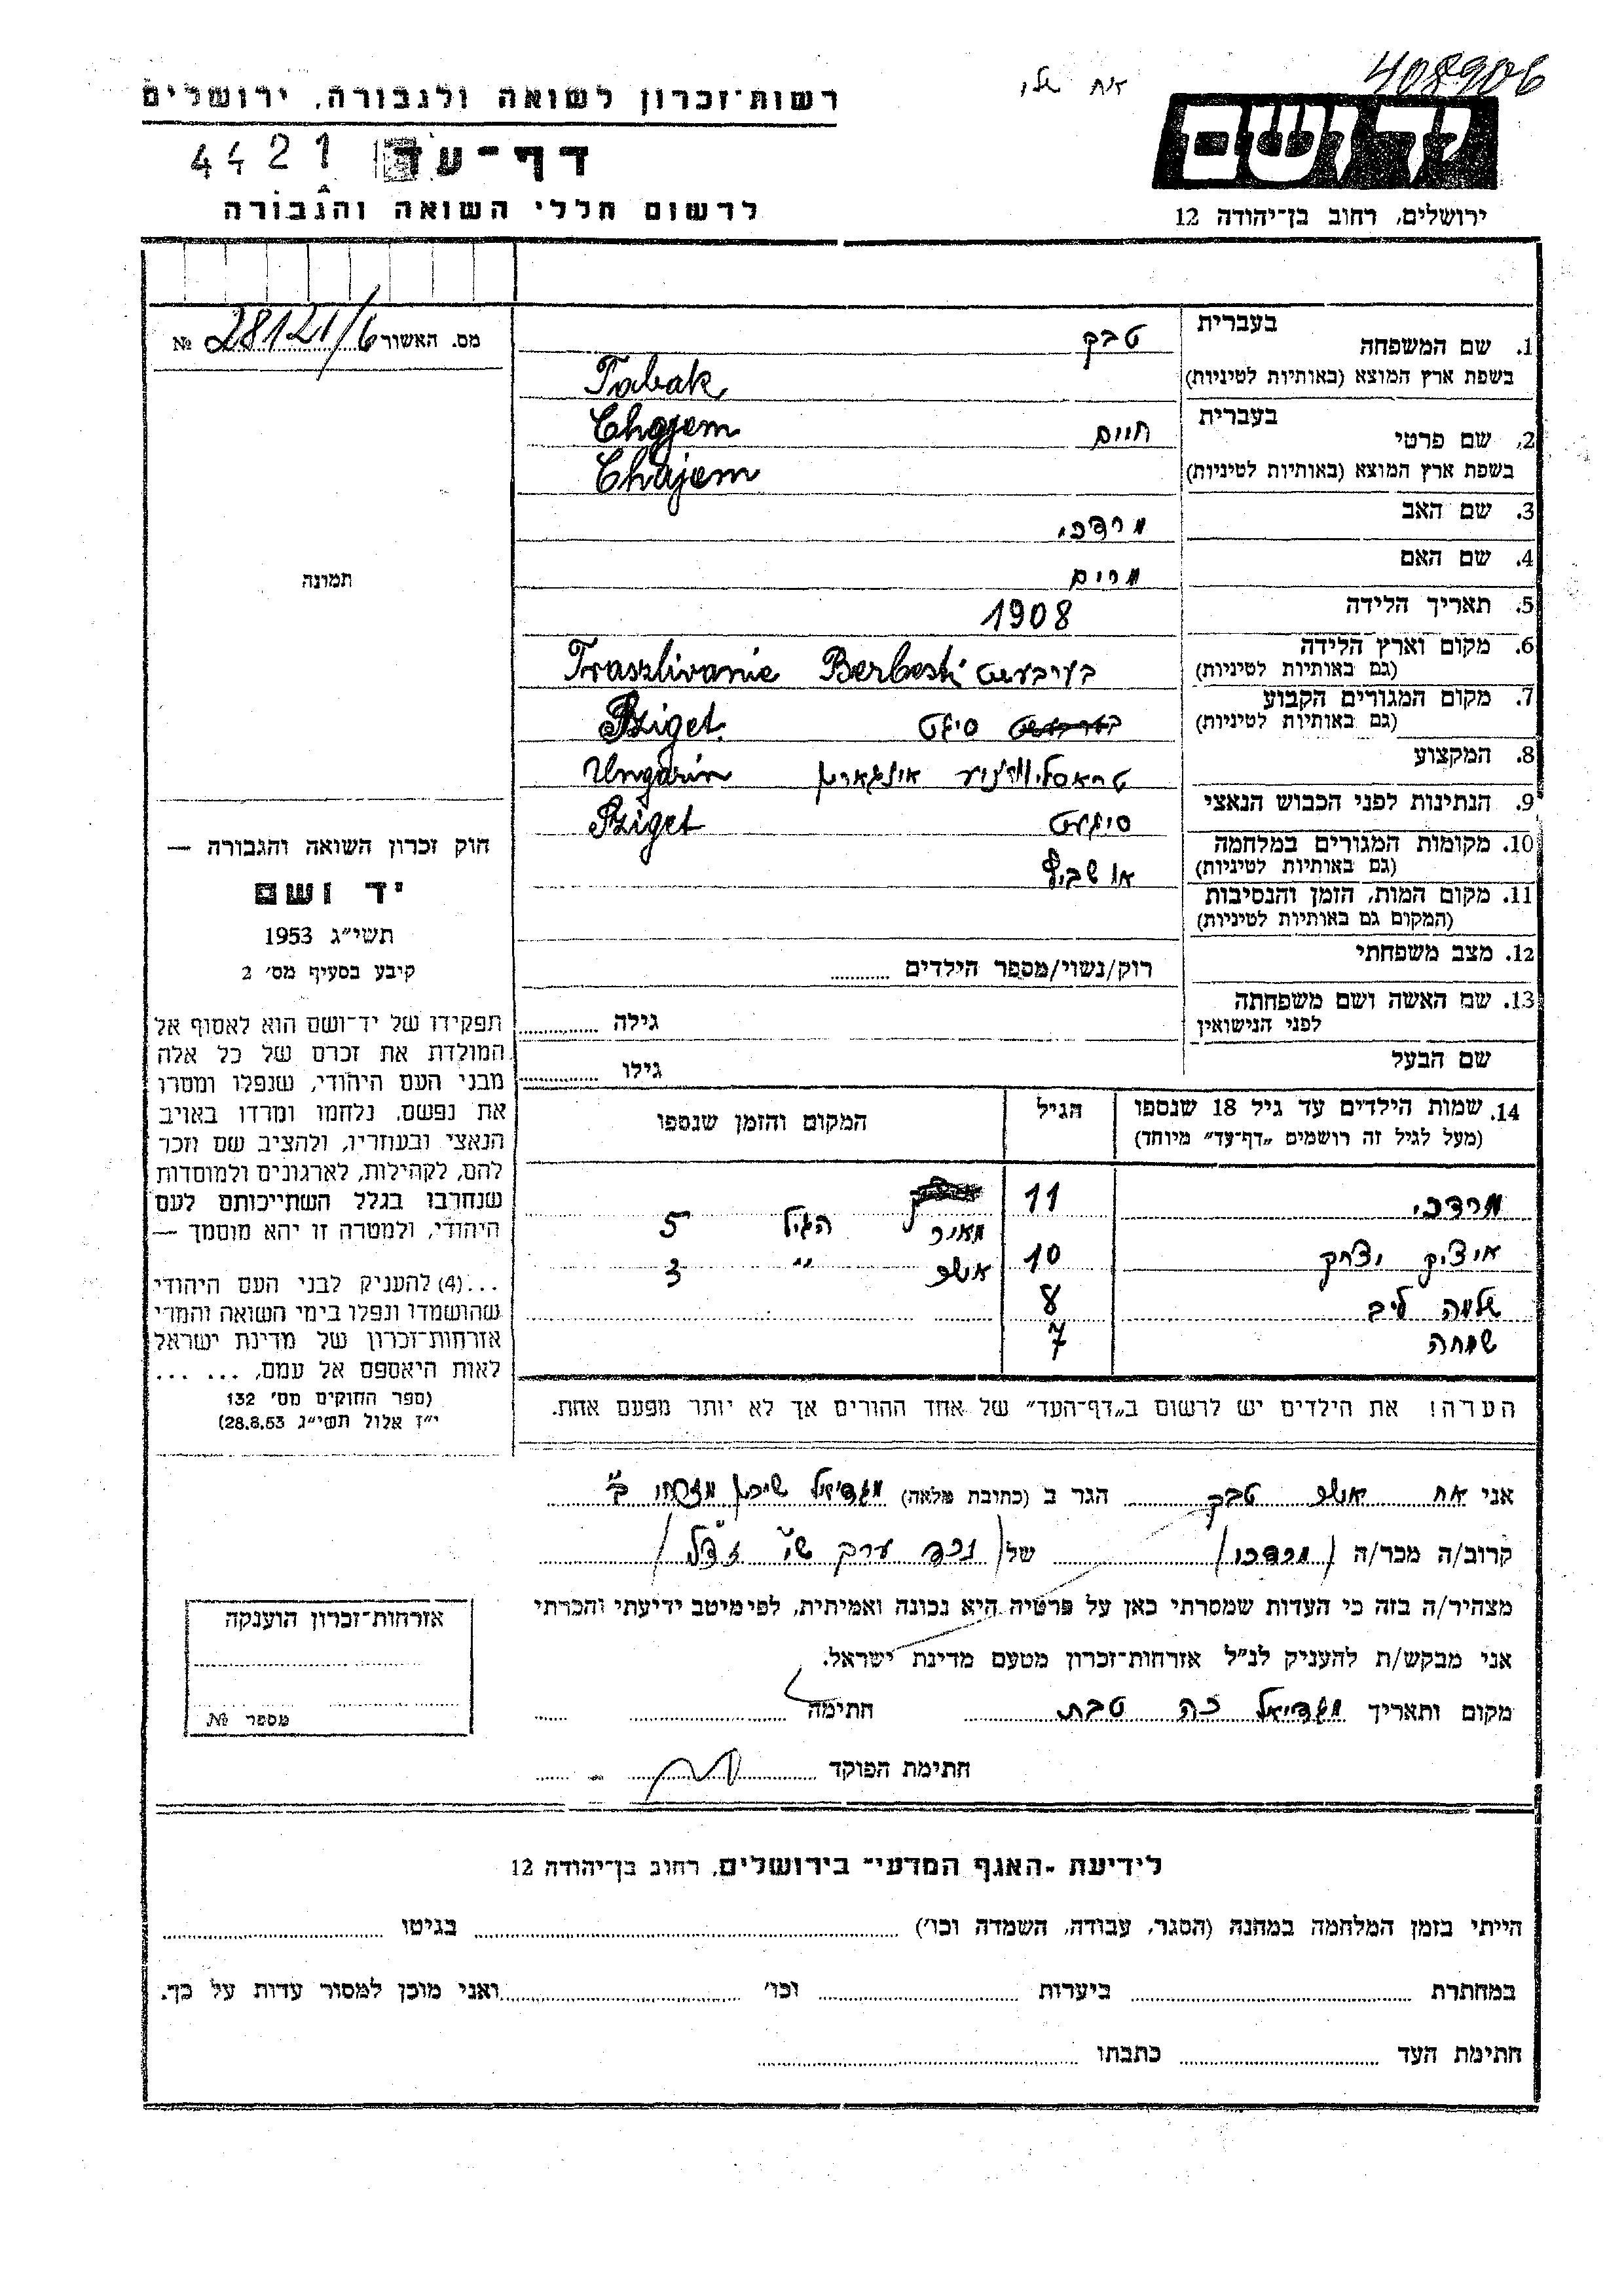 408906
אח שלי
רשות־זכרון לשואה ולגבורה, ירושלים
ידושם
דף־עד
4421
לרשום חללי השואה והגבורה
ירושלים, רחוב בן־יהודה 12
מס. האשור 28121/6 №
תמונה
חוק זכרון השואה והגבורה —
יד ושם
תשי״ג 1953
קיבע בסעיף מס׳ 2
תפקידו של יד־ושם הוא לאסוף אל
המולדת את זכרם של כל אלה
מבני העם היהודי, שנפלו ומסרו
את נפשם, נלחמו ומרדו באויב
הנאצי ובעוזריו, ולהציב שם וזכר
להם, לקהילות, לארגונים ולמוסדות
שנחרבו בגלל השתייכותם לעם
היהודי, ולמטרה זו יהא מוסמך —
...(4) להעניק לבני העם היהודי
שהושמדו ונפלו בימי השואה והמרי
אזרחות־זכרון של מדינת ישראל
לאות היאספם אל עמם, ... ...
(ספר החוקים מס׳ 132
י״ז אלול תשי״ג 28.8.53)
בעברית
1. שם המשפחה טבק
בשפת ארץ המוצא (באותיות לטיניות) Tabak
בעברית
2. שם פרטי חיים Chajem
בשפת ארץ המוצא (באותיות לטיניות) Chajem
3. שם האב מרדכי
4. שם האם מרים
5. תאריך הלידה 1908
6. מקום וארץ הלידה בערבעשט Berbesti Traszlivanie
(גם באותיות לטיניות)
7. מקום המגורים הקבוע סיגט Sziget
(גם באותיות לטיניות)
8. המקצוע אונגארין Ungarin
9. הנתינות לפני הכבוש הנאצי סיגעט Sziget
10. מקומות המגורים במלחמה
(גם באותיות לטיניות) אושביץ
11. מקום המות, הזמן והנסיבות
(המקום גם באותיות לטיניות)
12. מצב משפחתי רוק/נשוי/מספר הילדים
13. שם האשה ושם משפחתה גילה
לפני הנישואין
שם הבעל גילו
14. שמות הילדים עד גיל 18 שנספו הגיל המקום והזמן שנספו
(מעל לגיל זה רושמים „דף־עד״ מיוחד)
מרדכי 11
מאיר הגיל 5
איציק יצחק 10
אשר ״ 3
שלמה ליב 8
שמחה 7
הערה! את הילדים יש לרשום ב„דף־העד״ של אחד ההורים אך לא יותר מפעם אחת.
אני אח אשר טבק הגר ב (כתובת מלאה) מגדיאל שיכון מזרחי ב׳
קרוב/ה מכר/ה (מרדכי) של (נכד
מצהיר/ה בזה כי העדות שמסרתי כאן על פרטיה היא נכונה ואמיתית, לפי מיטב ידיעתי והכרתי
אני מבקש/ת להעניק לנ״ל אזרחות־זכרון מטעם מדינת ישראל.
מקום ותאריך מגדיאל כה טבת חתימה
חתימת הפוקד
אזרחות־זכרון הוענקה
מספר №
לידיעת „האגף המדעי״ בירושלים, רחוב בן־יהודה 12
הייתי בזמן המלחמה במחנה (הסגר, עבודה, השמדה וכו׳) בגיטו
במחתרת ביערות וכו׳ ואני מוכן למסור עדות על כך.
חתימת העד כתבתו